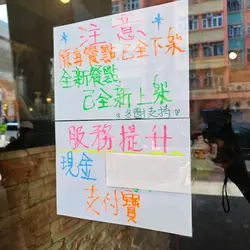 *注意*
原有餐點已全下架
全新餐點
已全新上架
*多謝支持♡
服務提升
現金
支付寶